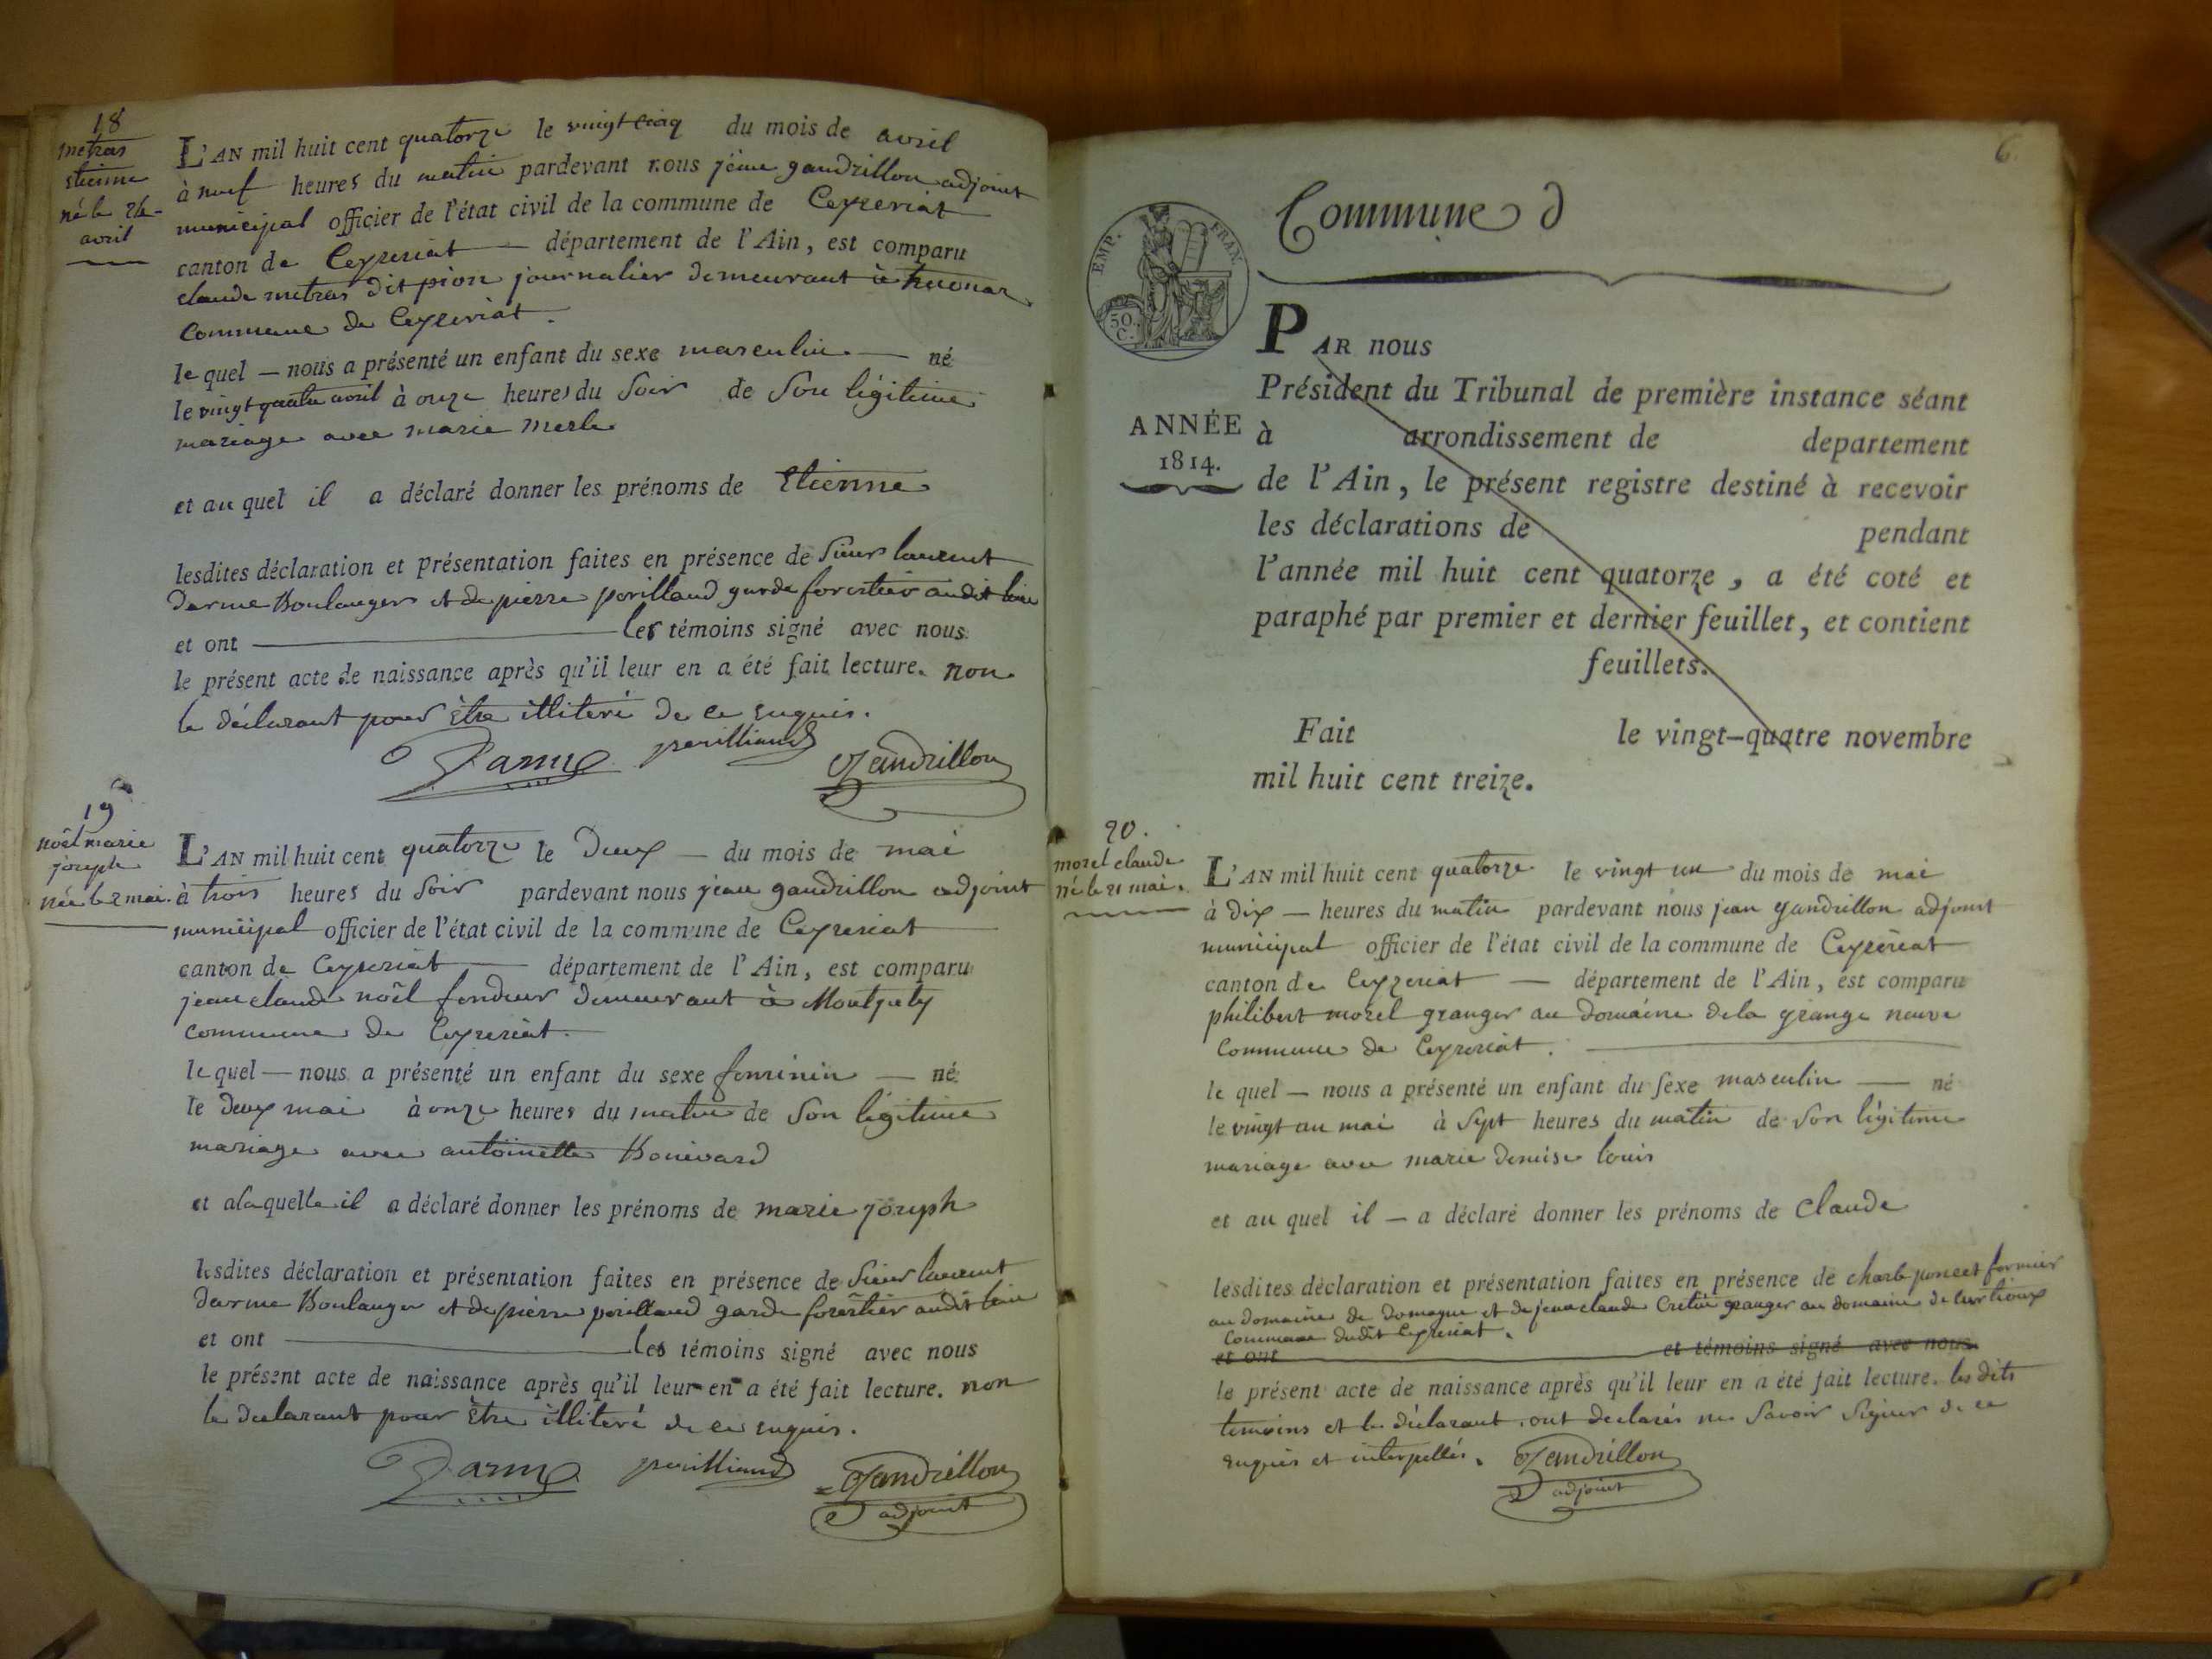 18
metras
etienne
né le 24
avril
L'AN mil huit cent quatorze le vingt cinq du mois de avril
à neuf heures du matin pardevant nous jean gandrillon adjoint
municipal officier de l'état civil de la commune de Ceyzeriat
canton de Ceyzeriat — département de l'Ain, est comparu
claude metras dit pion journalier demeurant à
commune de Ceyzeriat.
le quel — nous a présenté un enfant du sexe masculin — né
le vingt quatre avril à onze heures du soir de son légitime
mariage avec marie merle
et au quel il a déclaré donner les prénoms de Etienne
lesdites déclaration et présentation faites en présence de sieur laurent
darme Boulanger et de pierre perilland garde forestier audit lieu
et ont — les témoins signé avec nous
le présent acte de naissance après qu'il leur en a été fait lecture. non
le déclarant pour être illiteré de ce enquis.
Darme perilliand Gandrillon
19
noël marie
joseph
née le 2 mai.
L'AN mil huit cent quatorze le deux — du mois de mai
à trois heures du soir pardevant nous jean gandrillon adjoint
municipal officier de l'état civil de la commune de Ceyzeriat
canton de Ceyzeriat — département de l'Ain, est comparu
jean claude noël fondeur demeurant à Montjuly
commune de Ceyzeriat.
le quel — nous a présenté un enfant du sexe feminin — né
le deux mai à onze heures du matin de son légitime
mariage avec antoinette Bonivard
et a laquelle il a déclaré donner les prénoms de marie joseph
lesdites déclaration et présentation faites en présence de sieur laurent
darme Boulanger et de pierre perilland garde forêstier audit lieu
et ont — les témoins signé avec nous
le présent acte de naissance après qu'il leur en a été fait lecture. non
le déclarant pour être illiteré de ce enquis.
Darme perilliand Gandrillon
adjoint
6.
Commune d
EMP. FRAN.
50 C.
ANNÉE
1814.
PAR nous
Président du Tribunal de première instance séant
à arrondissement de departement
de l'Ain, le présent registre destiné à recevoir
les déclarations de pendant
l'année mil huit cent quatorze, a été coté et
paraphé par premier et dernier feuillet, et contient
feuillets.
Fait le vingt-quatre novembre
mil huit cent treize.
20.
morel claude
né le 21 mai.
L'AN mil huit cent quatorze le vingt un du mois de mai
à dix — heures du matin pardevant nous jean gandrillon adjoint
municipal officier de l'état civil de la commune de Ceyzériat
canton de Ceyzeriat — département de l'Ain, est comparu
philibert morel granger au domaine de la grange neuve
commune de Ceyzeriat.
le quel — nous a présenté un enfant du sexe masculin — né
le vingt un mai à sept heures du matin de son légitime
mariage avec marie denise louis
et au quel il — a déclaré donner les prénoms de claude
lesdites déclaration et présentation faites en présence de charle poncet fermier
au domaine de domagne et de jean claude Cretin granger au domaine de
commune dudit Ceyzeriat.
et ont et témoins signé avec nous
le présent acte de naissance après qu'il leur en a été fait lecture. les dits
temoins et le déclarant, ont declarés ne savoir signer de ce
enquis et interpellés. Gandrillon
adjoint